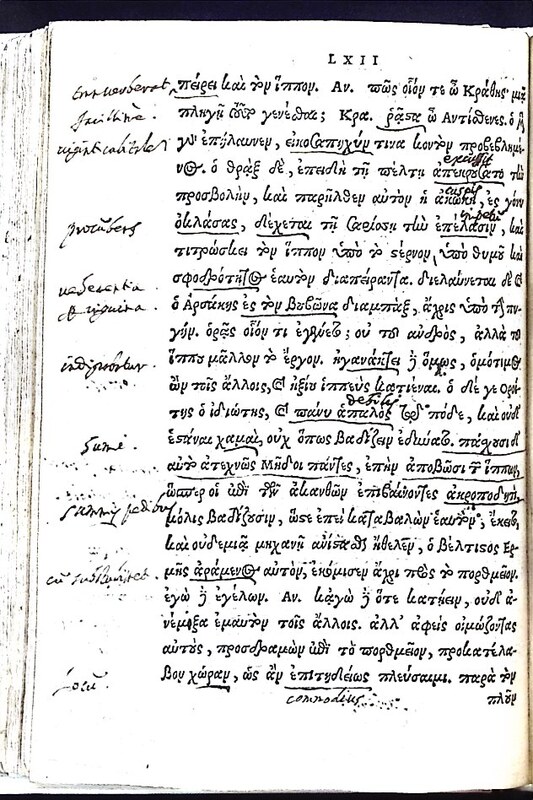 LXII
πείρει καὶ τὸν ἵππον. Αν. πῶς οἷόν τε ὦ Κράτης μιᾷ
πληγῇ τοῦτο γενέσθαι; Κρα. ῥᾷστα ὦ Αντίσθενες. ὁ μὲν
γὰρ ἐπήλαυνεν, εἰκοσάπηχύν τινα κοντὸν προβεβλημέ
facillime.
viginti cubitalem
νος. ὁ θρᾷξ δὲ, ἐπειδὴ τῇ πέλτῃ ἀπεκρούσατο τὴν
excussit
προσβολὴν, καὶ παρῆλθεν αὐτὸν ἡ ἀκωκὴ, ἐς γόνυ
cuspis
ὀκλάσας, δέχεται τῇ σαρίσσῃ τὴν ἐπέλασιν, καὶ
τιτρώσκει τὸν ἵππον ὑπὸ τὸ στέρνον, ὑπὸ θυμοῦ καὶ
σφοδρότητος ἑαυτὸν διαπείραντα. διελαύνεται δὲ καὶ
ὁ Αρσάκης ἐς τὸν βουβῶνα διαμπὰξ, ἄχρις ὑπὸ τὴν πυ-
γήν. ὁρᾷς οἷόν τι ἐγένετο; οὐ τοῦ ἀνδρὸς, ἀλλὰ τοῦ
ἵππου μᾶλλον τὸ ἔργον. ἠγανάκτει δ' ὅμως, ὁμότιμος
ὢν τοῖς ἄλλοις, καὶ ἠξίου ἱππεὺς κατιέναι. ὁ δέ γε Οροί
debilis
της ὁ ἰδιώτης, καὶ πάνυ ἁπαλὸς τὼ πόδε, καὶ οὐδὲ
ἑστάναι χαμαὶ, οὐχ ὅπως βαδίζειν ἐδύνατο. πάσχουσι δὲ
humi.
αὐτὸ ἀτεχνῶς Μῆδοι πάντες, ἐπὴν ἀποβῶσι τῶν ἵππων,
ὥσπερ οἱ ἐπὶ τῶν ἀκανθῶν ἐπιβαίνοντες ἀκροποδητὶ,
μόλις βαδίζουσιν, ὥστε ἐπεὶ καταβαλὼν ἑαυτὸν, ἔκειτο,
καὶ οὐδεμιᾷ μηχανῇ ἀνίστασθαι ἤθελεν, ὁ βέλτιστος Ερ-
μῆς ἀράμενος αὐτὸν, ἐκόμισεν ἄχρι πρὸς τὸ πορθμεῖον.
ἐγὼ δ' ἐγέλων. Αν. κἀγὼ δ' ὅτε κατῄειν, οὐδ' ἀ-
νέμιξα ἐμαυτὸν τοῖς ἄλλοις. ἀλλ' ἀφεὶς οἰμώζοντας
αὐτοὺς, προσδραμὼν ἐπὶ τὸ πορθμεῖον, προκατέλα-
βον χώραν, ὡς ἂν ἐπιτηδείως πλεύσαιμι. παρὰ τὸν
locum.
commodius
πλοῦν